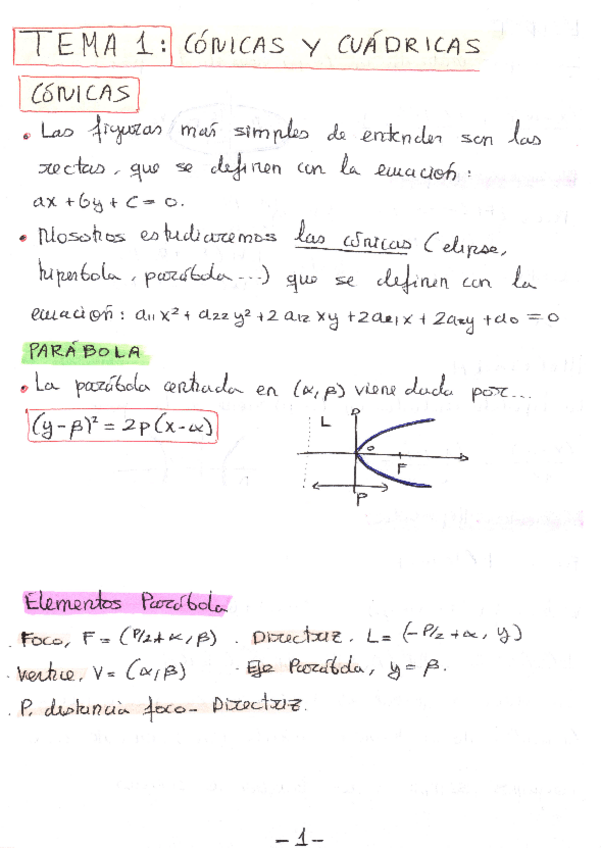 TEMA 1: CÓNICAS Y CUÁDRICAS
CÓNICAS
• Las figuras mas simples de entender son las
rectas, que se definen con la ecuación:
ax + by + c = 0.
• Nosotros estudiaremos las cónicas (elipse,
hiperbola, parábola...) que se definen con la
ecuación: a11 x² + a22 y² + 2 a12 xy + 2a01x + 2a02y + a0 = 0
PARÁBOLA
• La parábola centrada en (α, β) viene dada por...
(y-β)² = 2p(x-α)
L
P
o
F
P
Elementos Parábola
. Foco, F = (P/2+α, β) . Directriz. L = (-P/2+α, y)
. Vertice, V = (α, β) . Eje Parábola, y = β.
. P. distancia foco - Directriz.
- 1 -